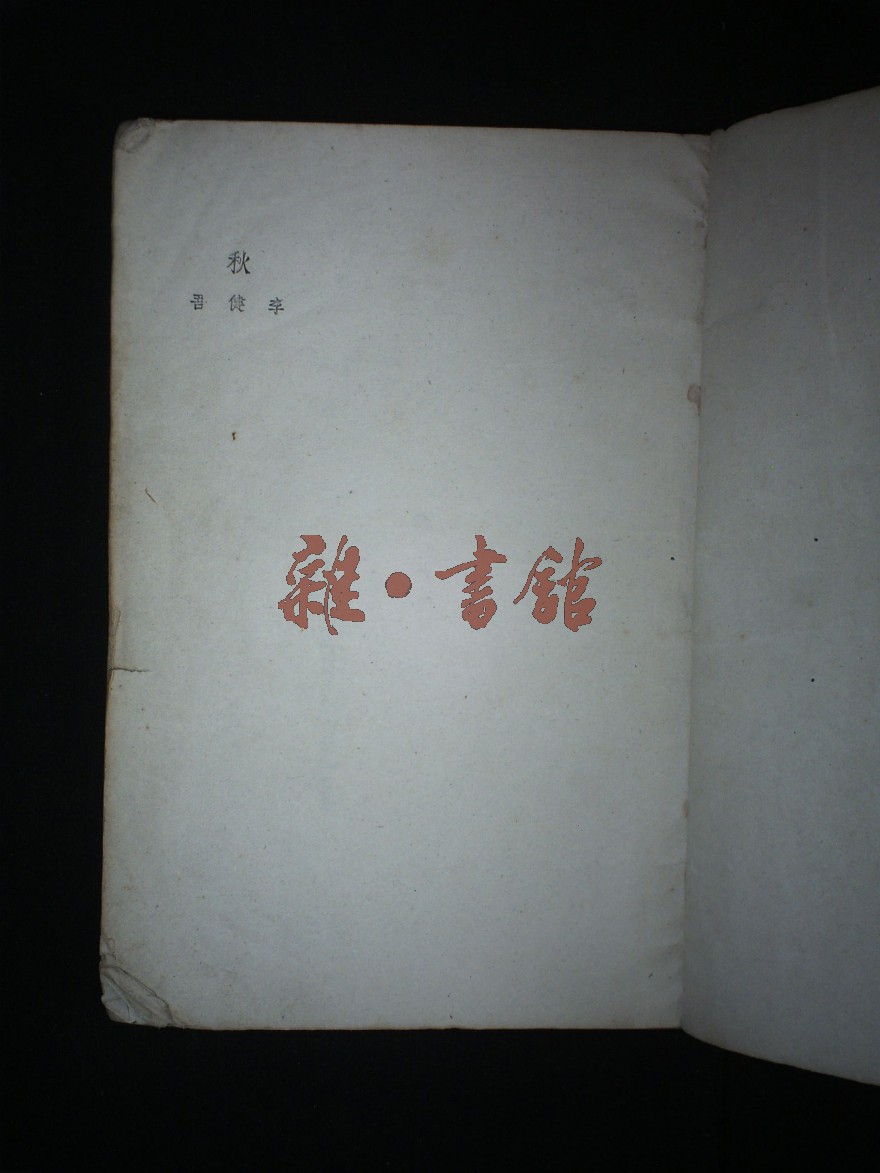 秋
吾健李
雜·書館